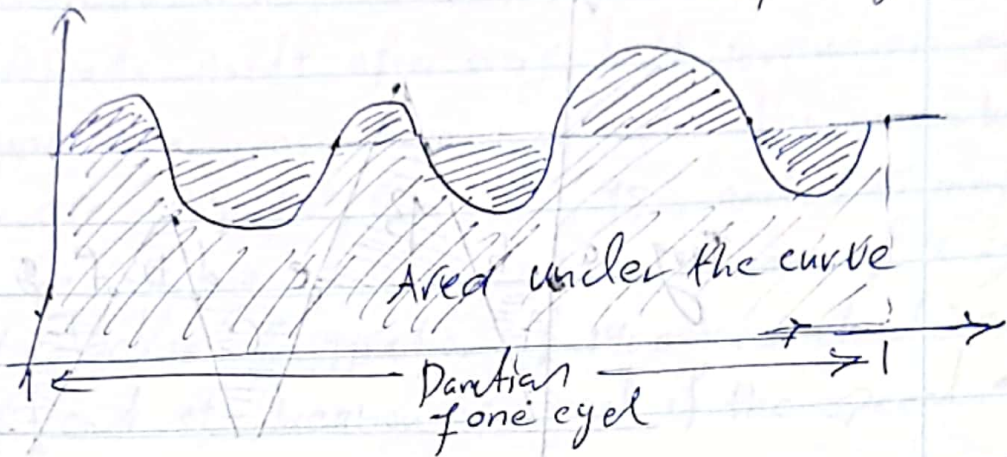 Area under the curve
Duration
of one cycl